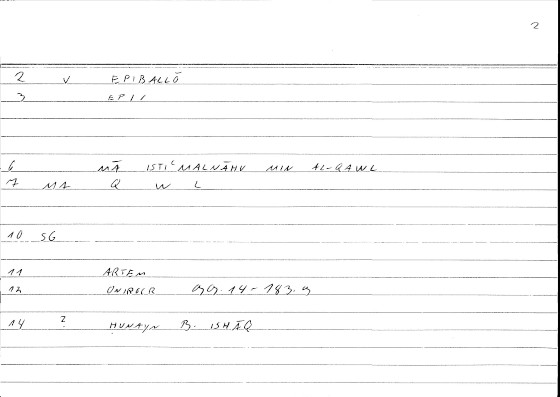 2
2 V EPIBALLŌ
3 EPI/
6 MĀ ISTIʿMALNĀHU MIN AL-QAWL
7 MA Q W L
10 SG
11 ARTEM
12 ONIROCR 99.14-183.9
14 ? ḤUNAYN B. ISḤĀQ